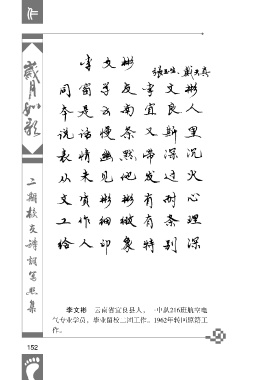 作
岁月如歌
二期校友诗词写照集
李文彬
同窗学友李文彬
本是云南宜良人
说话慢条又斯里
表情幽默带深沉
从未见他发过火
文质彬彬有耐心
工作细致有条理
给人印象特别深
李文彬 云南省宜良县人，一中队216班航空电
气专业学员，毕业留校三团工作。1962年转回原籍工
作。
152